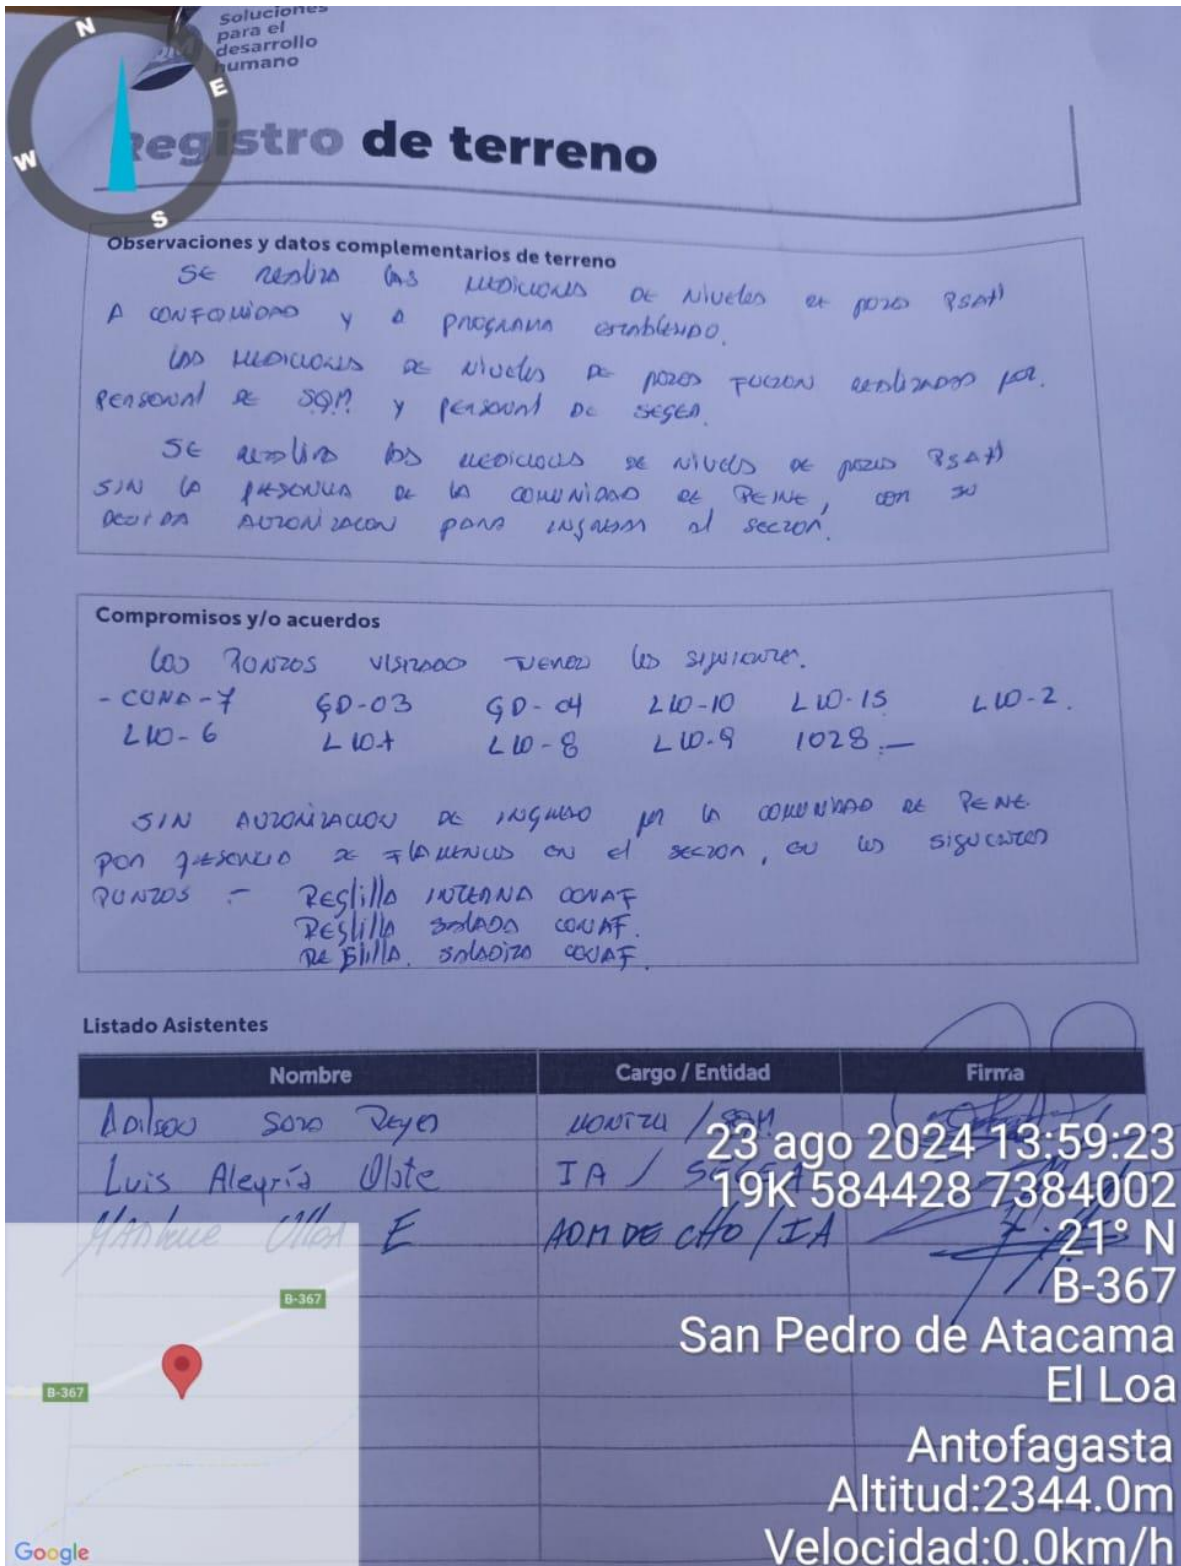 Soluciones
para el
desarrollo
humano
N
E
W
S
Registro de terreno
Observaciones y datos complementarios de terreno
SE realiza las mediciones DE Niveles de pozos PSAH
A CONFOMIDAD y a PROGRAMA establecido.
las mediciones de Niveles de pozos FUERON realizados por
PERSONAL DE SQM y personal DE SEGEA.
SE realiza las mediciones de Niveles de pozos PSAH
SIN la presencia de la COMUNIDAD de PEINE, con su
AUTORIZACION para ingresar al sector.
Compromisos y/o acuerdos
los visitado los siguiente.
- CUNA-7 GD-03 GD-04 L10-10 L10-15 L10-2.
L10-6 L10-8 L10-9 1028.—
SIN AUTORIZACION DE INGRESO por la comunidad de PEINE
por presencia de FLAMENCOS en el sector, en los siguientes
PUNTOS :- Reglilla INTERNA CONAF
Reglilla SALADA CONAF.
Reglilla. CONAF.
Listado Asistentes
Nombre Cargo / Entidad Firma
Adilson Soto Reyes / SQM
Luis Alegría Olate IA / SEGEA
Ulloa E ADM DE CTTO / IA
23 ago 2024 13:59:23
19K 584428 7384002
21° N
B-367
San Pedro de Atacama
El Loa
Antofagasta
Altitud:2344.0m
Velocidad:0.0km/h
B-367
B-367
Google